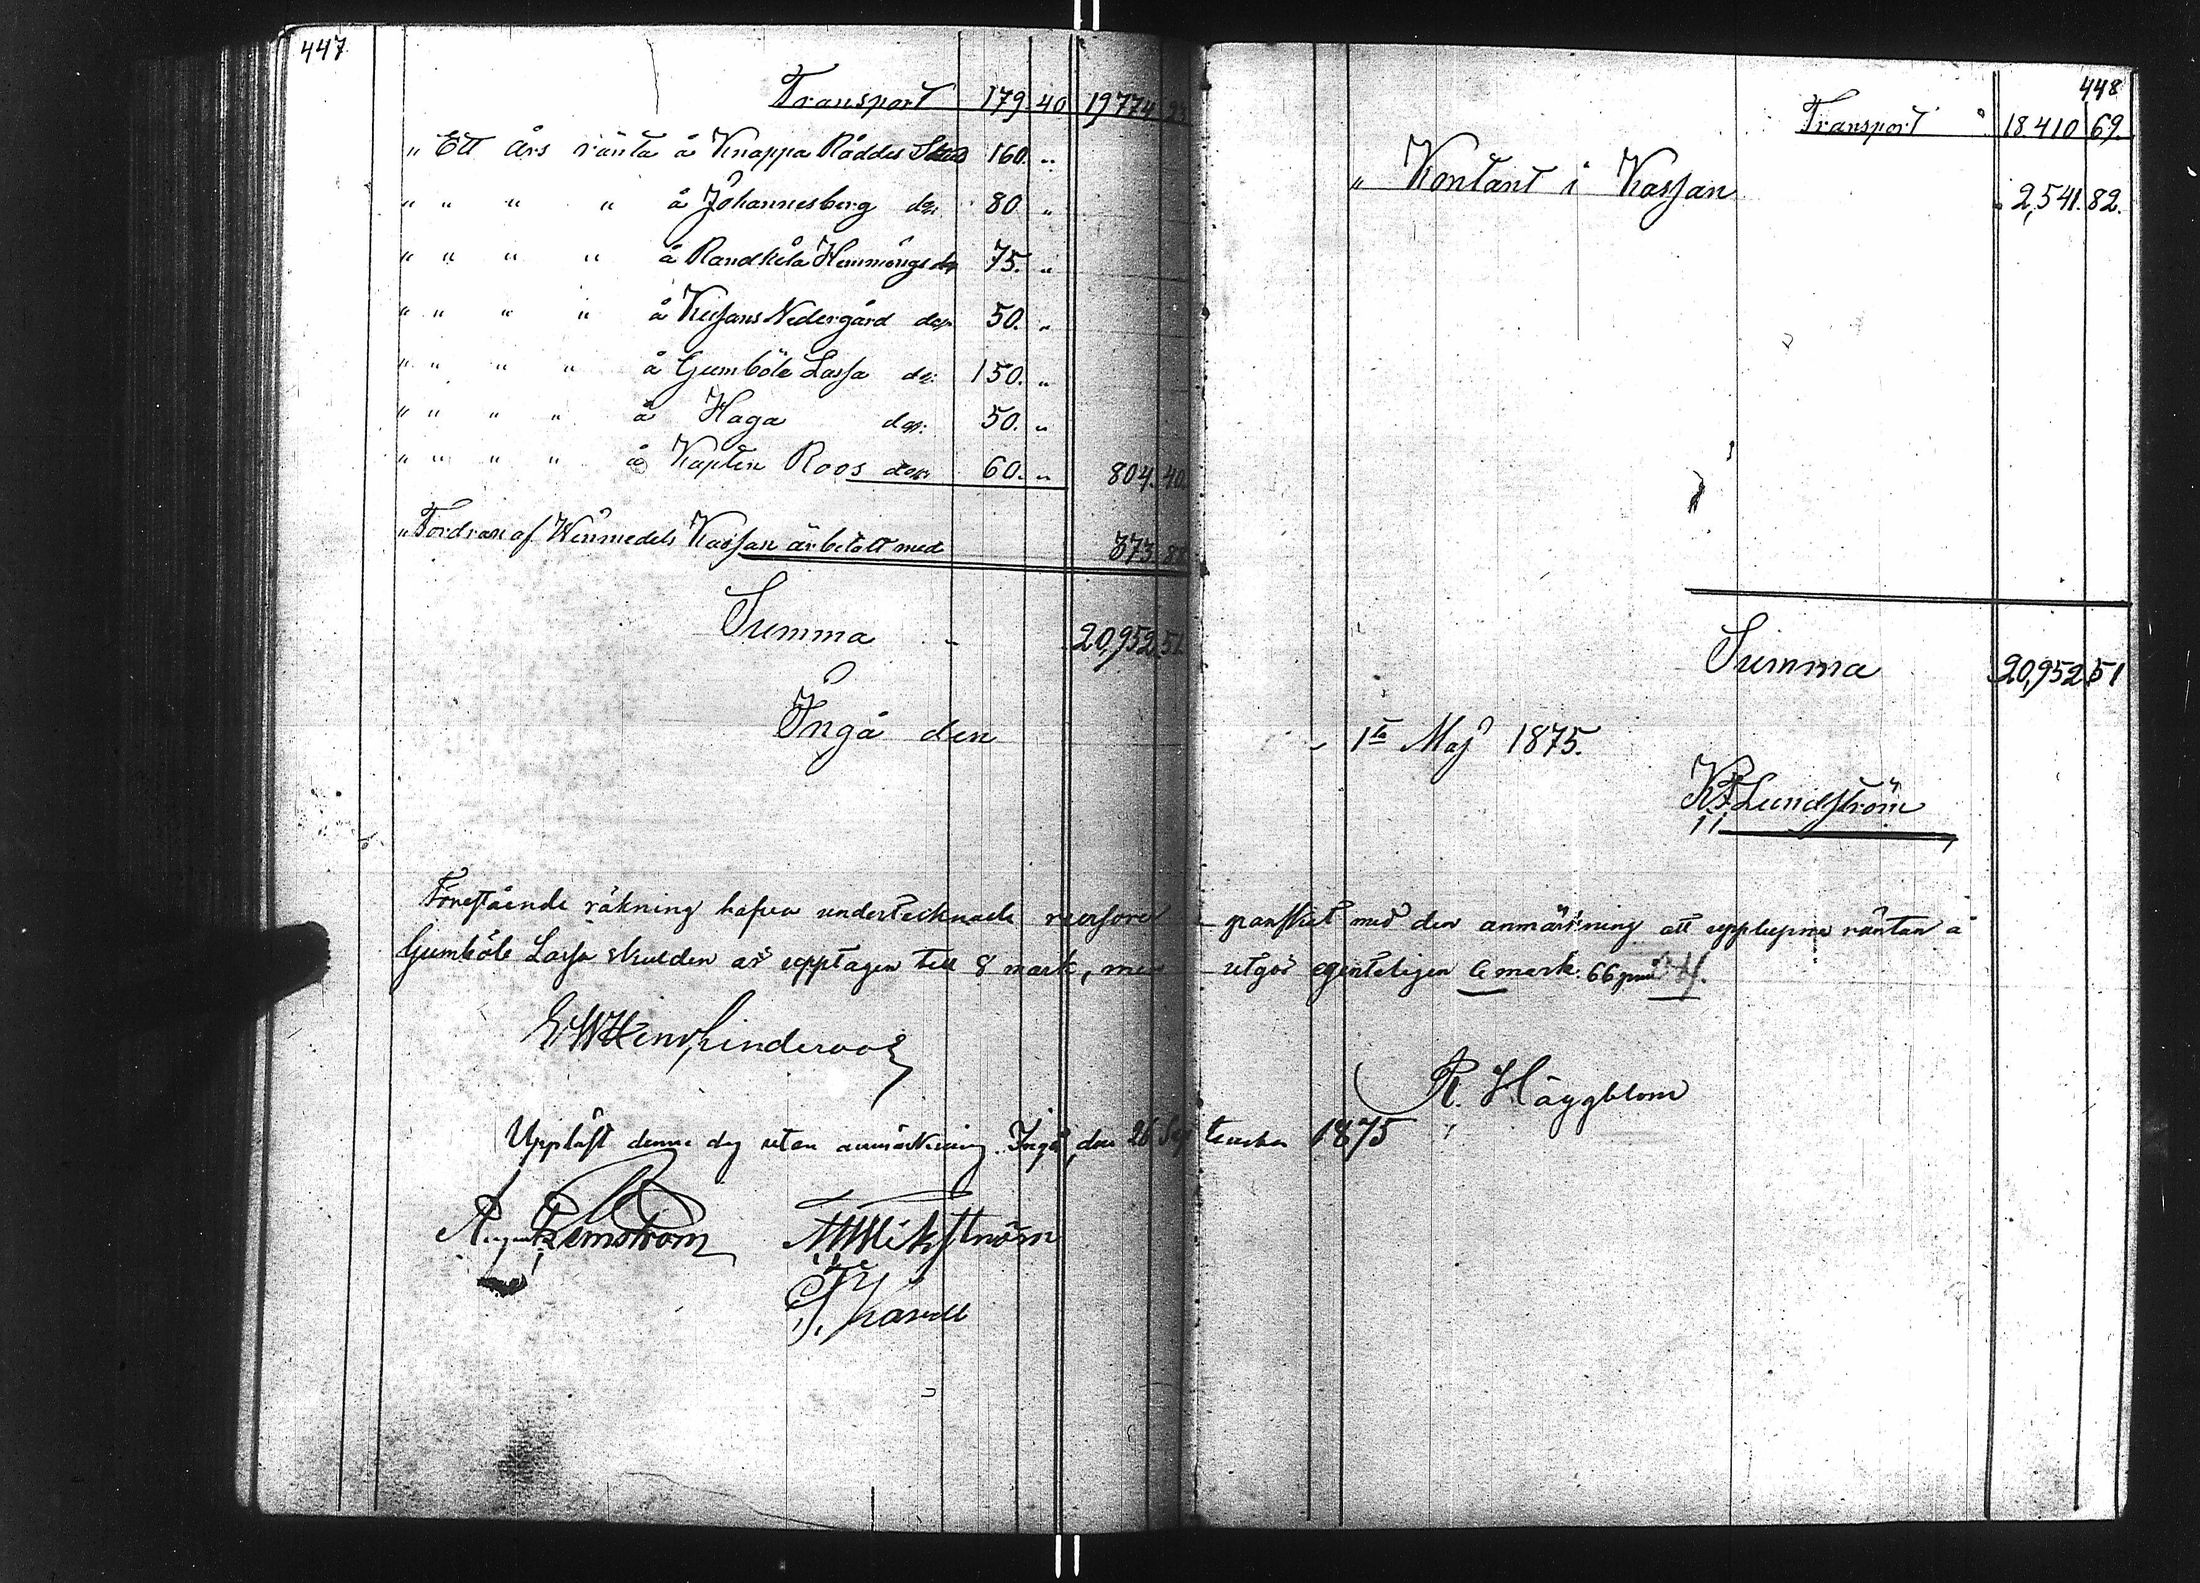 447
Transport 179 40 19774 23
" Ett års ränta å Knappa Råddes Skuld 160. "
" " " " å Johannesberg do: 80 "
" " " " å Randkila Hemmings do 75. "
" " " " å Nedergård do: 50. "
" " " " å Gumböle Lassa do: 150. "
" " " " å Haga do: 50. "
" " " " å Kapten Roos do: 60. " 804. 40.
" Fordran af Kassan är betalt med 373. 88
Summa - 20,952. 51.
Ingå den
Förestående räkning hafva undertecknade revisorer
Gumböle Lassa skulden är upptagen till 8 mark, men
Linderoos
Uppläst denna dag utan anmärkning. Ingå, den 26 September 1875
August
448
Transport 18 410 69.
" Kontant i Kassan 2,541. 82.
Summa 20,952 51
1sta Maj 1875.
K F Lundström
granskat med den anmärkning att upplupna räntan å
utgör egentligen 6 mark 66 pni
R. Häggblom